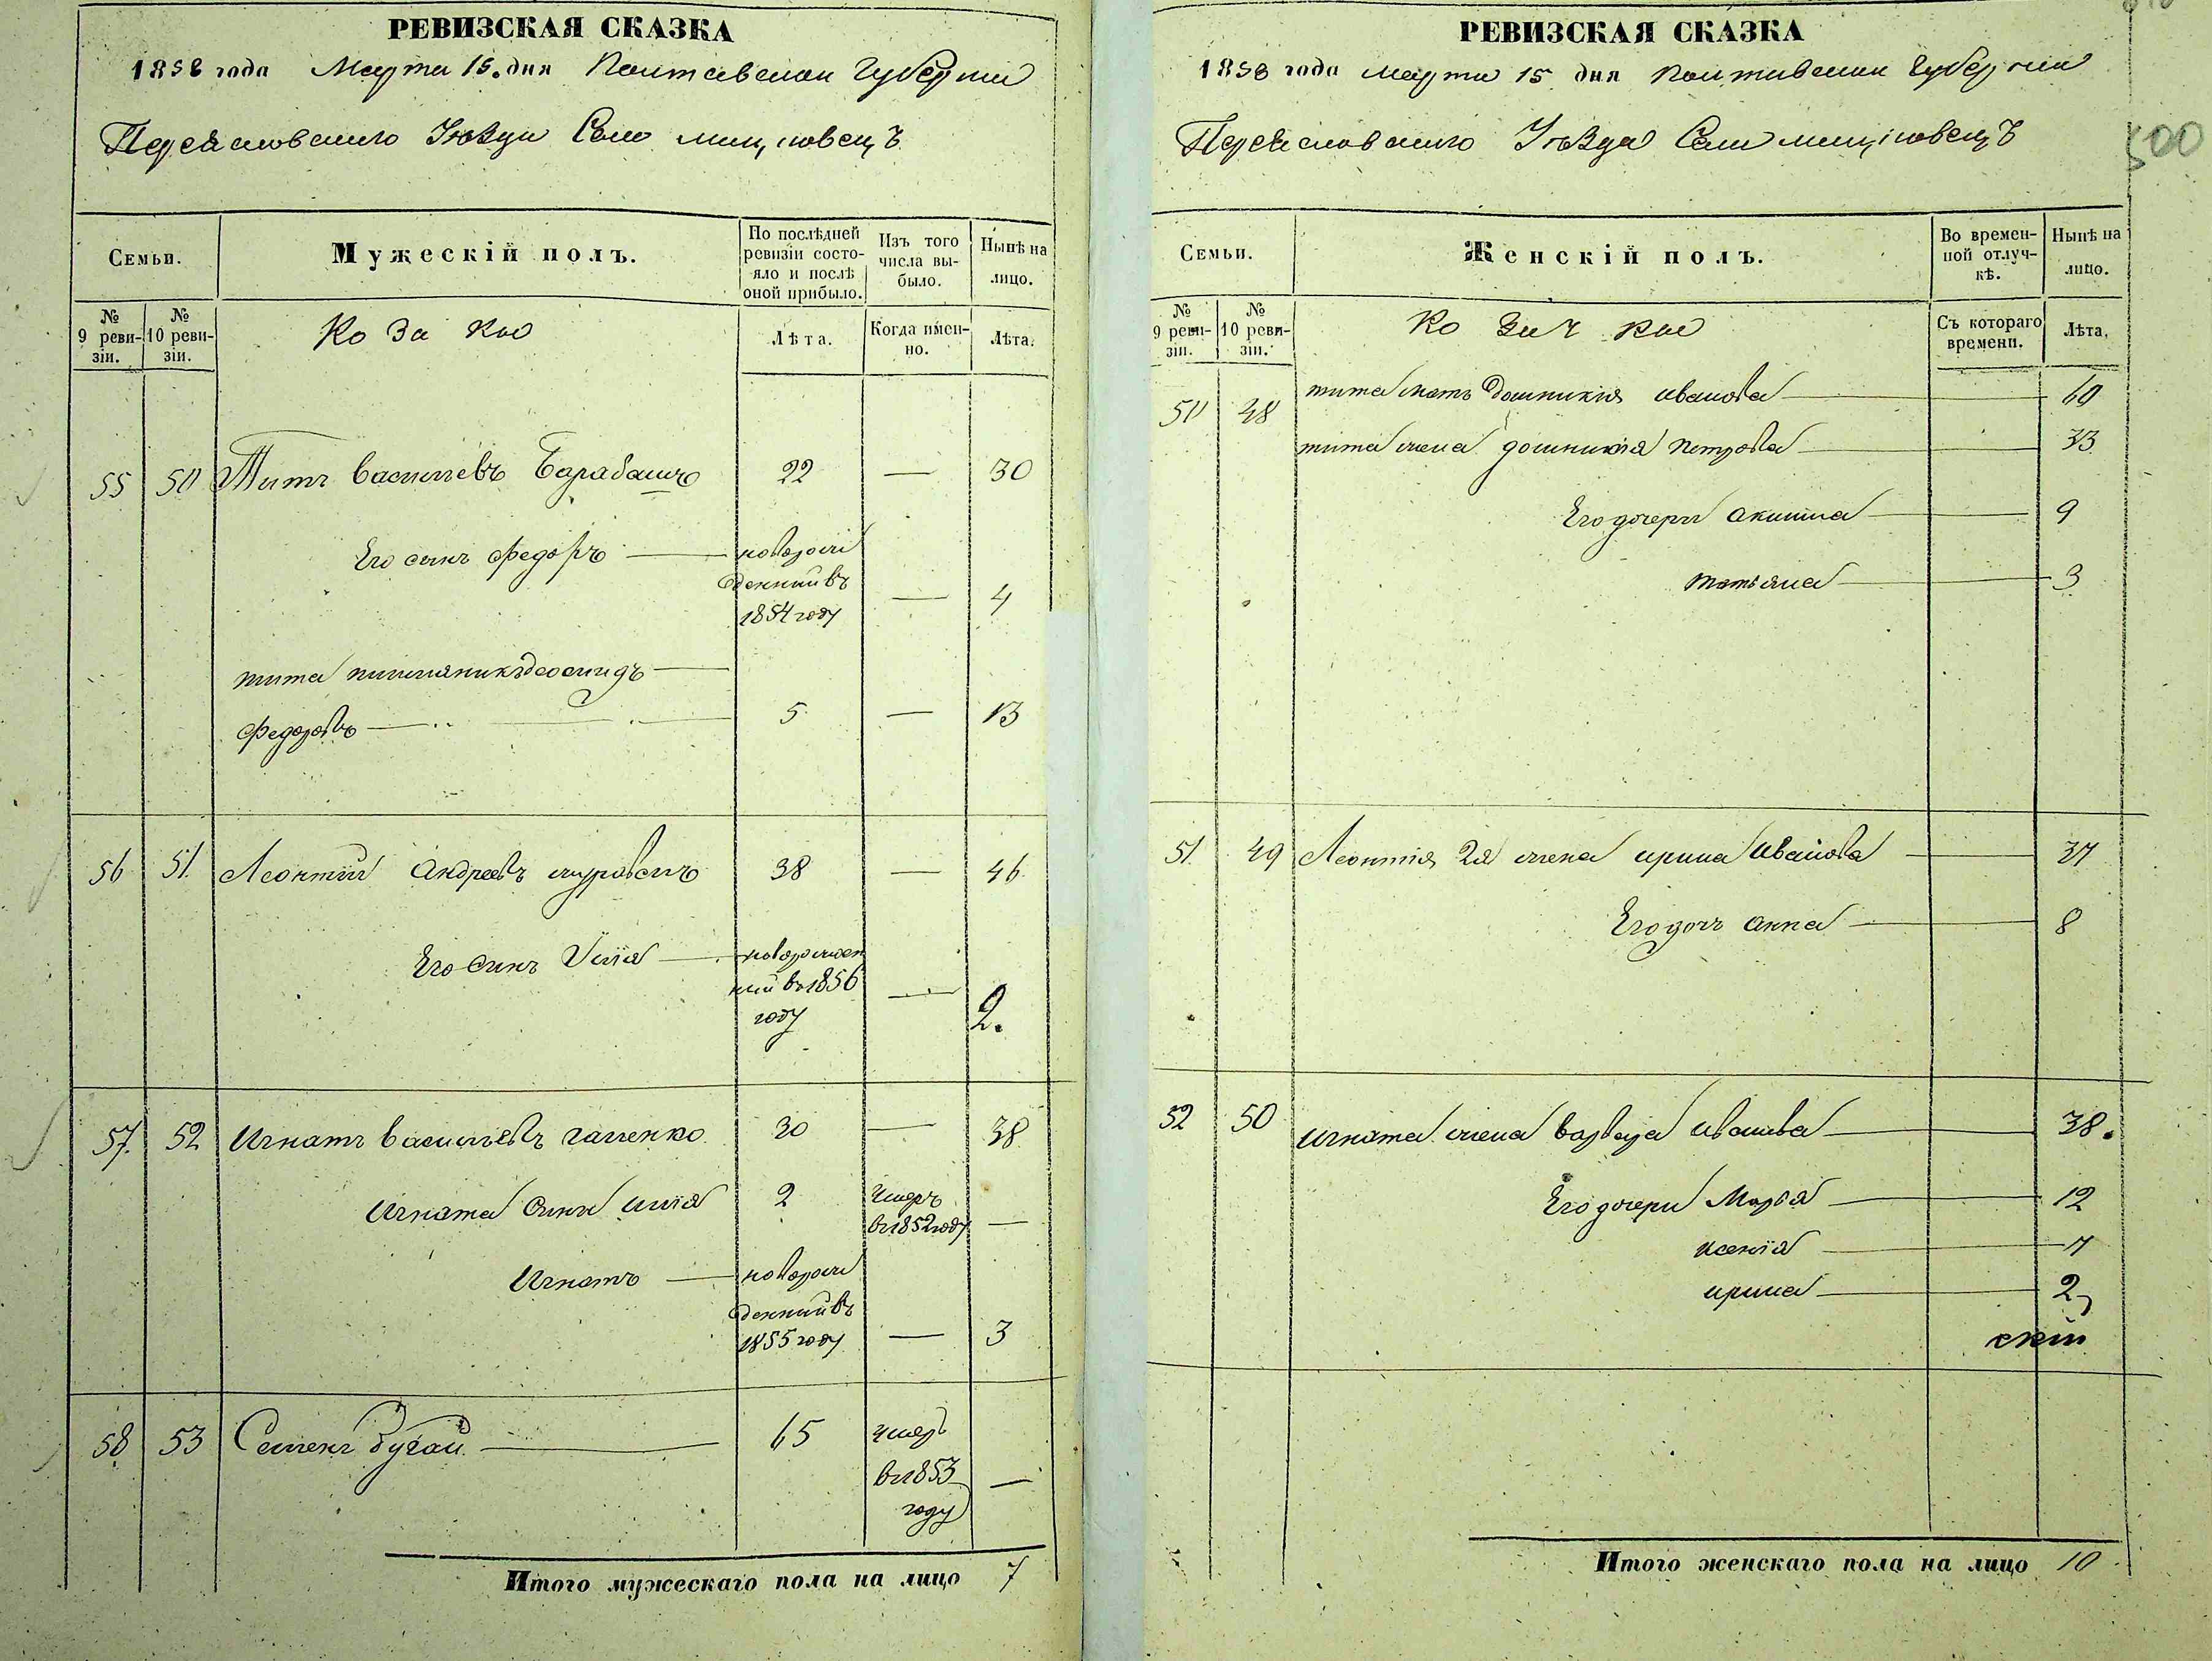 РЕВИЗСКАЯ СКАЗКА
1858 года Марта 15. дня Полтавской Губерніи
Переяславского Уѣзда Село
Семьи.
Мужескій полъ.
По послѣдней ревизіи состояло и послѣ оной прибыло.
Изъ того числа выбыло.
Нынѣ на лицо.
№ 9 ревизіи.
№ 10 ревизіи.
Козаки
Лѣта.
Когда именно.
Лѣта.
55 50 Титъ Васильевъ Барабашъ 22 — 30
Его сынъ Федоръ — новорожденний въ 1854 году — 4
тита племяникъ
Федоровъ — 5 — 13
56 51. Леонтий Андреевъ 38 — 46
Его Синъ Илія — новорожденний въ 1856 году — 2.
57. 52 Игнатъ Васильевъ 30 — 38
Игната Синъ Илія 2 Умеръ въ 1852 году —
Игнатъ — новорожденний въ 1855 году — 3
58 53 Семенъ Бугай — 65 умеръ въ 1853 году —
Итого мужескаго пола на лицо 7
РЕВИЗСКАЯ СКАЗКА
1858 года марта 15 дня Полтавской Губерніи
Переяславского Уѣзда Село
500
Семьи.
Женскій полъ.
Во временной отлучкѣ.
Нынѣ на лицо.
№ 9 ревизіи.
№ 10 ревизіи.
Козачки
Съ котораго времени.
Лѣта.
50 48 тита мать Домникия Иванова — 60
тита жена домникія Петрова — 33
Его дочери Акилина — 9
татьяна — 3
51. 49 Леонтія 2я жена ирина Иванова — 37
Его дочь Анна — 8
52 50 игната жена варвара Иванова — 38.
Его дочери Марія — 12
ксенія — 7
ирина — 2
скій
Итого женскаго пола на лицо 10